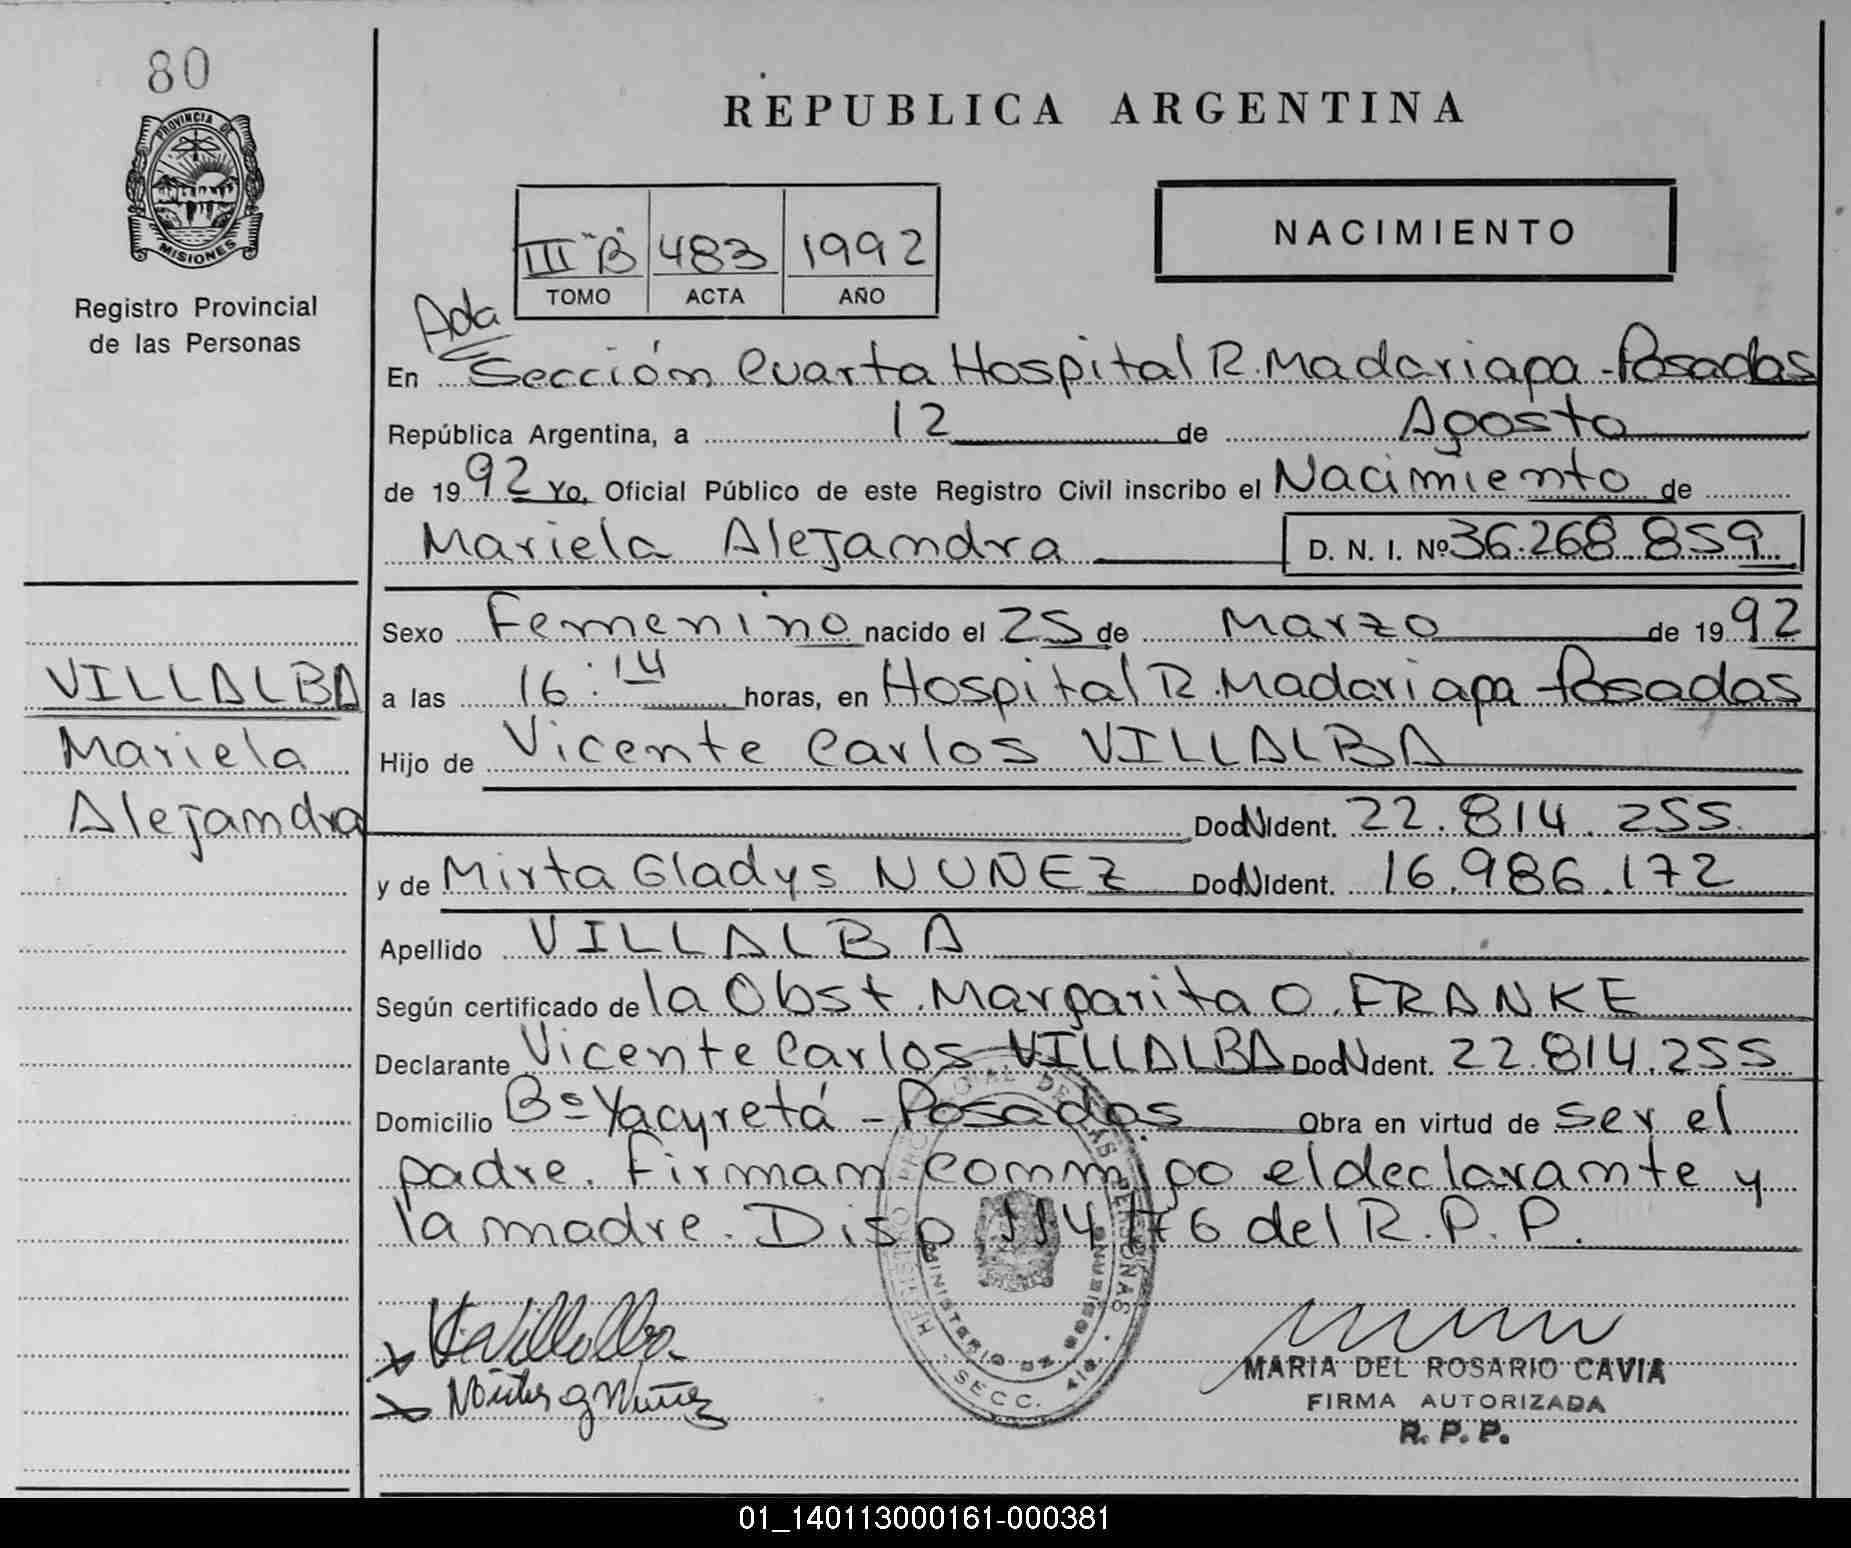 80
PROVINCIA DE
MISIONES
Registro Provincial
de las Personas
REPUBLICA ARGENTINA
III "B" 483 1992
TOMO ACTA AÑO
NACIMIENTO
Ada
En Sección Cuarta Hospital R. Madariaga - Posadas
República Argentina, a 12 de Agosto
de 1992 Yo, Oficial Público de este Registro Civil inscribo el Nacimiento de
Mariela Alejandra D. N. I. Nº 36.268.859
Sexo Femenino nacido el 25 de Marzo de 1992
VILLALBA
Mariela
Alejandra
a las 16:14 horas, en Hospital R. Madariaga Posadas
Hijo de Vicente Carlos VILLALBA
Doc N Ident. 22.814.255
y de Mirta Gladys NUÑEZ Doc N Ident. 16.986.172
Apellido VILLALBA
Según certificado de la Obst. Margarita O. FRANKE
Declarante Vicente Carlos VILLALBA Doc N Ident. 22.814.255
Domicilio Bº Yacyretá - Posadas Obra en virtud de ser el
padre. Firman conmigo el declarante y
la madre. Disp 114/76 del R.P.P.
REGISTRO PROVINCIAL DE LAS PERSONAS
MINISTERIO DE MISIONES
SECC. 4ta
MARIA DEL ROSARIO CAVIA
FIRMA AUTORIZADA
R. P. P.
01_140113000161-000381